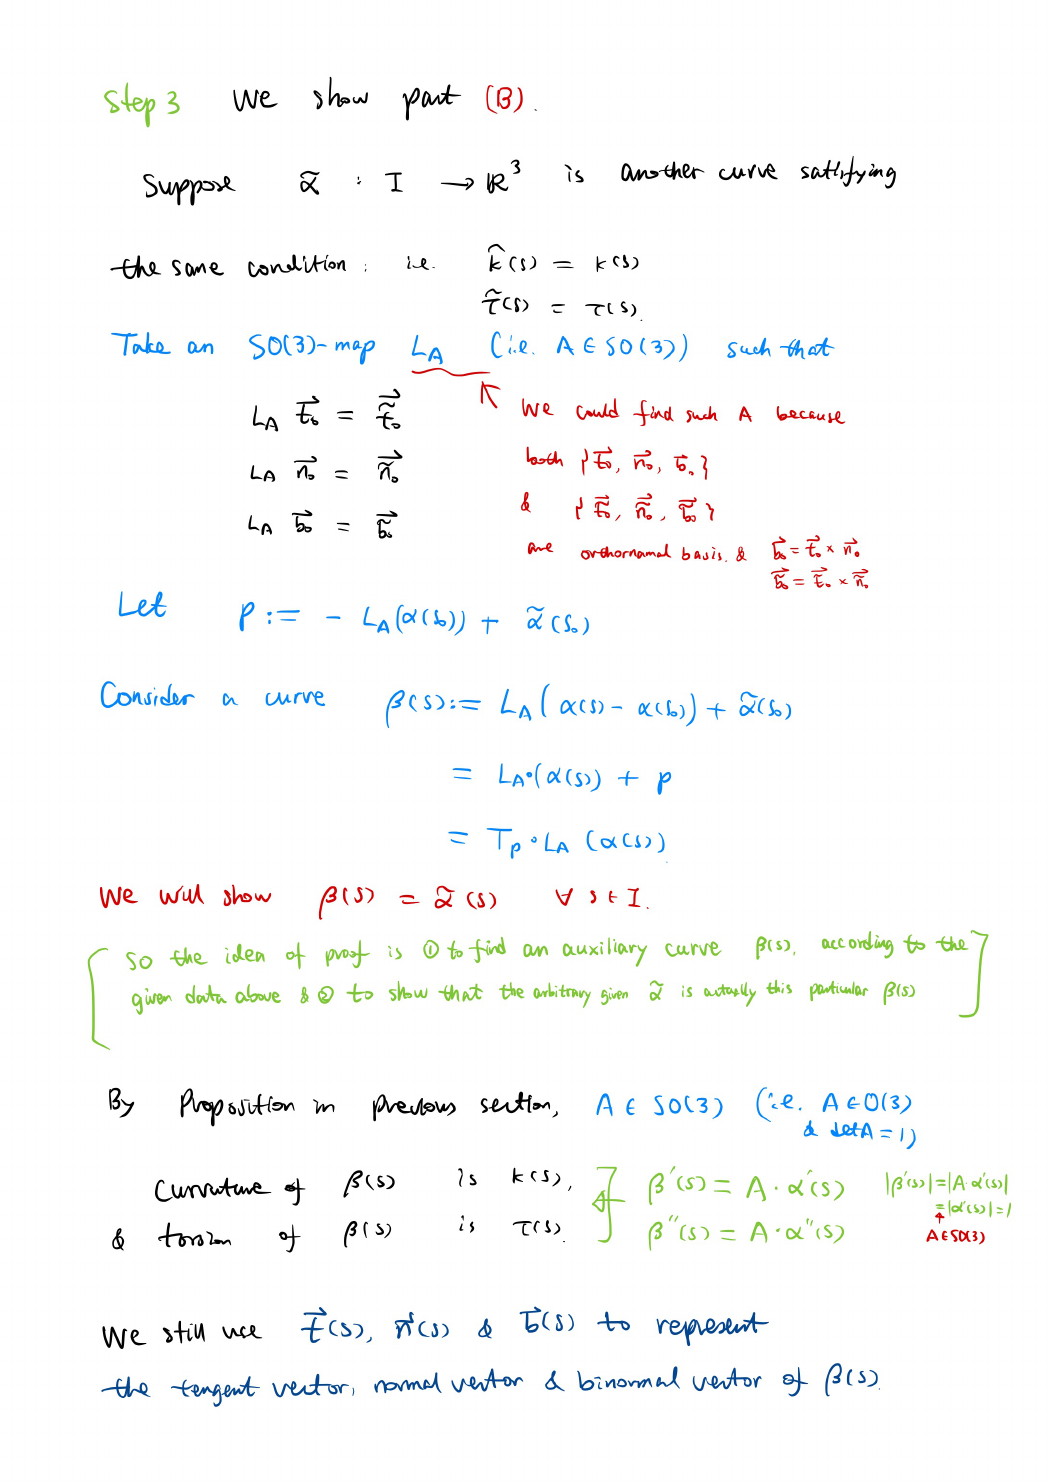 Step 3 We show part (B).
Suppose α̃ : I → ℝ³ is another curve satisfying
the same condition: i.e. k̂(s) = k(s)
τ̃(s) = τ(s).
Take an SO(3)-map L_A (i.e. A ∈ SO(3)) such that
L_A t⃗₀ = t̃⃗₀
L_A n⃗₀ = ñ⃗₀
L_A b⃗₀ = b̃⃗₀
We could find such A because
both {t⃗₀, n⃗₀, b⃗₀}
& {t̃⃗₀, ñ⃗₀, b̃⃗₀}
are orthornamal basis. & b⃗₀ = t⃗₀ × n⃗₀
b̃⃗₀ = t̃⃗₀ × ñ⃗₀
Let p := - L_A(α(s₀)) + α̃(s₀)
Consider a curve β(s) := L_A(α(s) - α(s₀)) + α̃(s₀)
= L_A∘(α(s)) + p
= T_p ∘ L_A (α(s)).
We will show β(s) = α̃(s) ∀ s ∈ I.
So the idea of proof is ① to find an auxiliary curve β(s), according to the
given data above & ② to show that the arbitrary given α̃ is actually this particular β(s)
By Proposition in previous section, A ∈ SO(3) (i.e. A ∈ O(3)
& det A = 1)
Curvature of β(s) is k(s), β'(s) = A · α'(s) |β'(s)| = |A·α'(s)|
= |α'(s)| = 1
& torsion of β(s) is τ(s). β''(s) = A · α''(s) A∈SO(3)
We still use t⃗(s), n⃗(s) & b⃗(s) to represent
the tangent vector, normal vector & binormal vector of β(s).